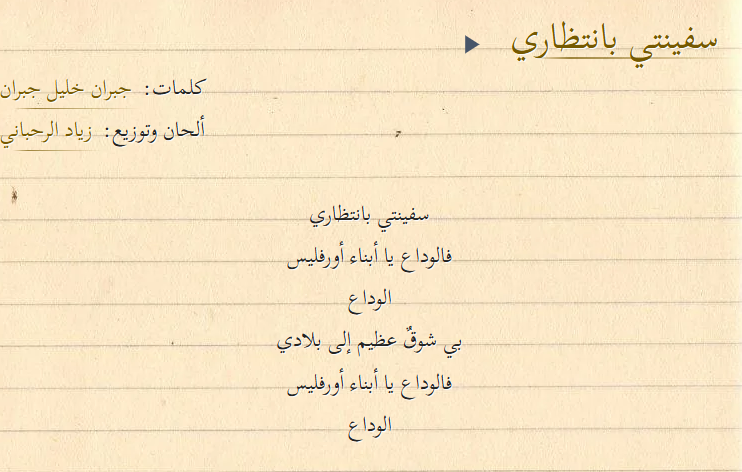 سفينتي بانتظاري
كلمات: جبران خليل جبران
ألحان وتوزيع: زياد الرحباني
سفينتي بانتظاري
فالوداع يا أبناء أورفليس
الوداع
بي شوقٌ عظيم إلى بلادي
فالوداع يا أبناء أورفليس
الوداع